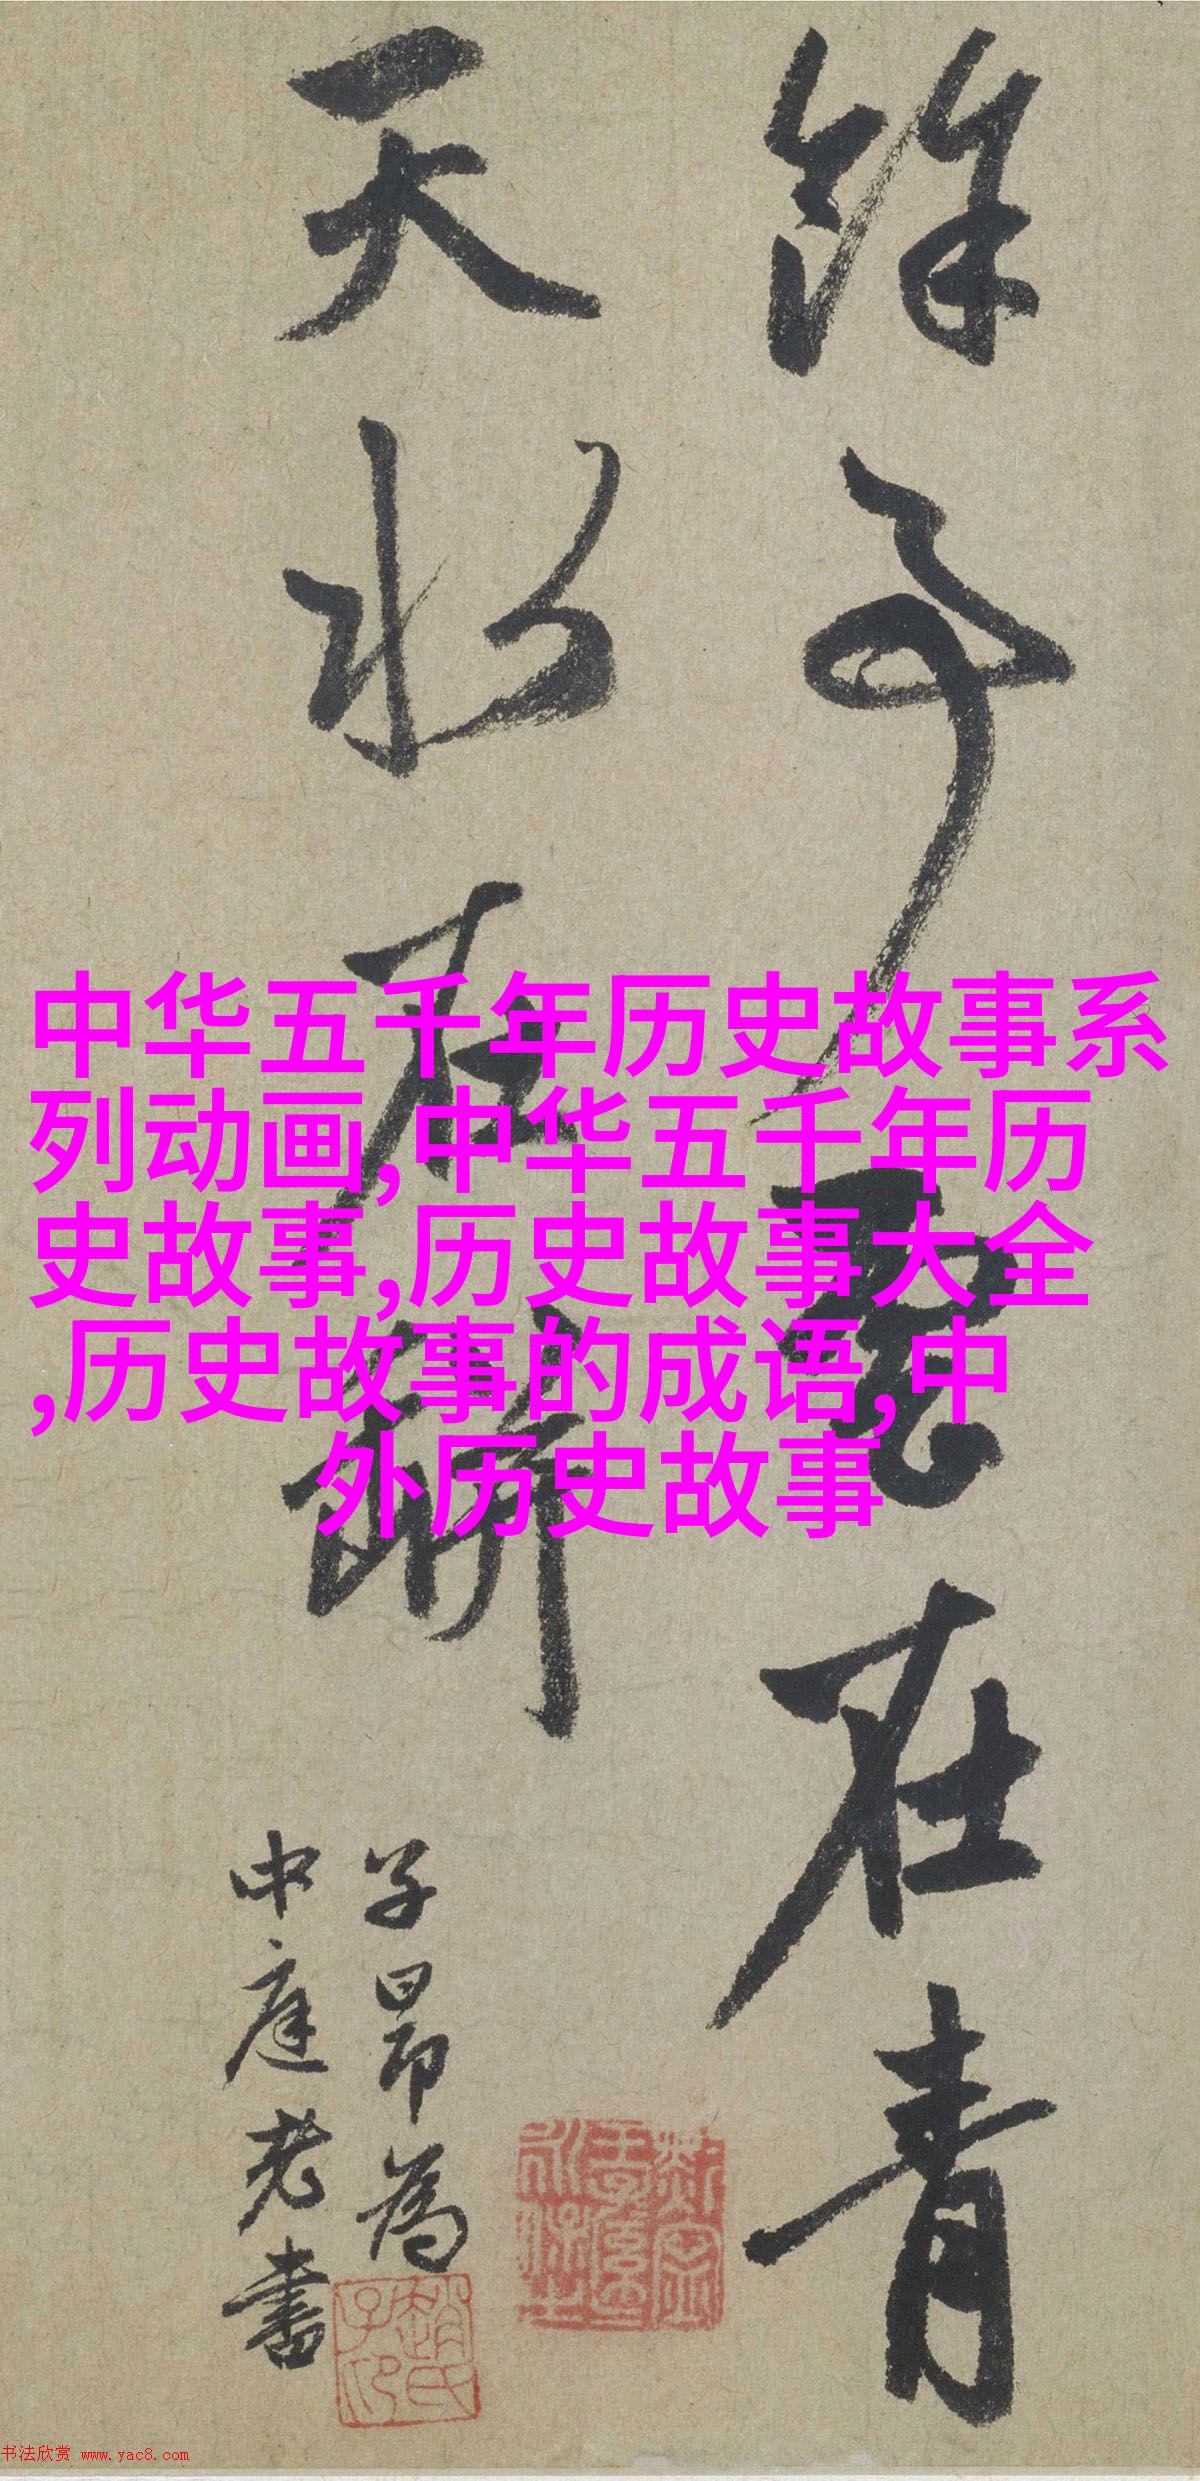 餘事雲在青
天水在瓶
子昂為
中庭老書
中华五千年历史故事系
列动画,中华五千年历
史故事,历史故事大全
,历史故事的成语,中
外历史故事
书法欣赏 www.yac8.com